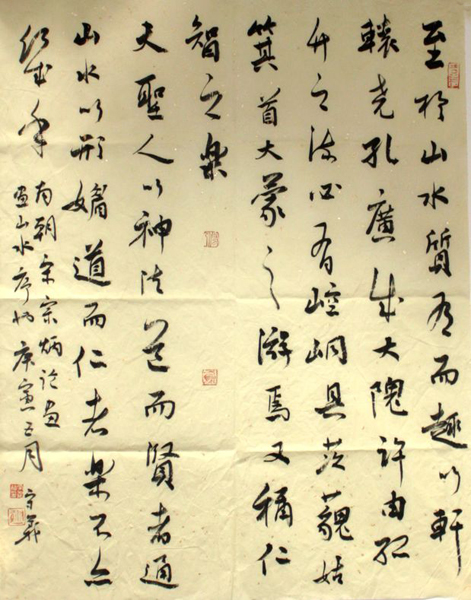 至於山水質有而趣以軒
轅堯孔廣成大隗許由孤
竹之流必有崆峒具茨藐姑
箕首大蒙之游焉又稱仁
智之樂
夫聖人以神法道而賢者通
山水以形媚道而仁者樂不亦
幾乎
南朝宋宗炳论畫
畫山水序 庚寅五月
守義